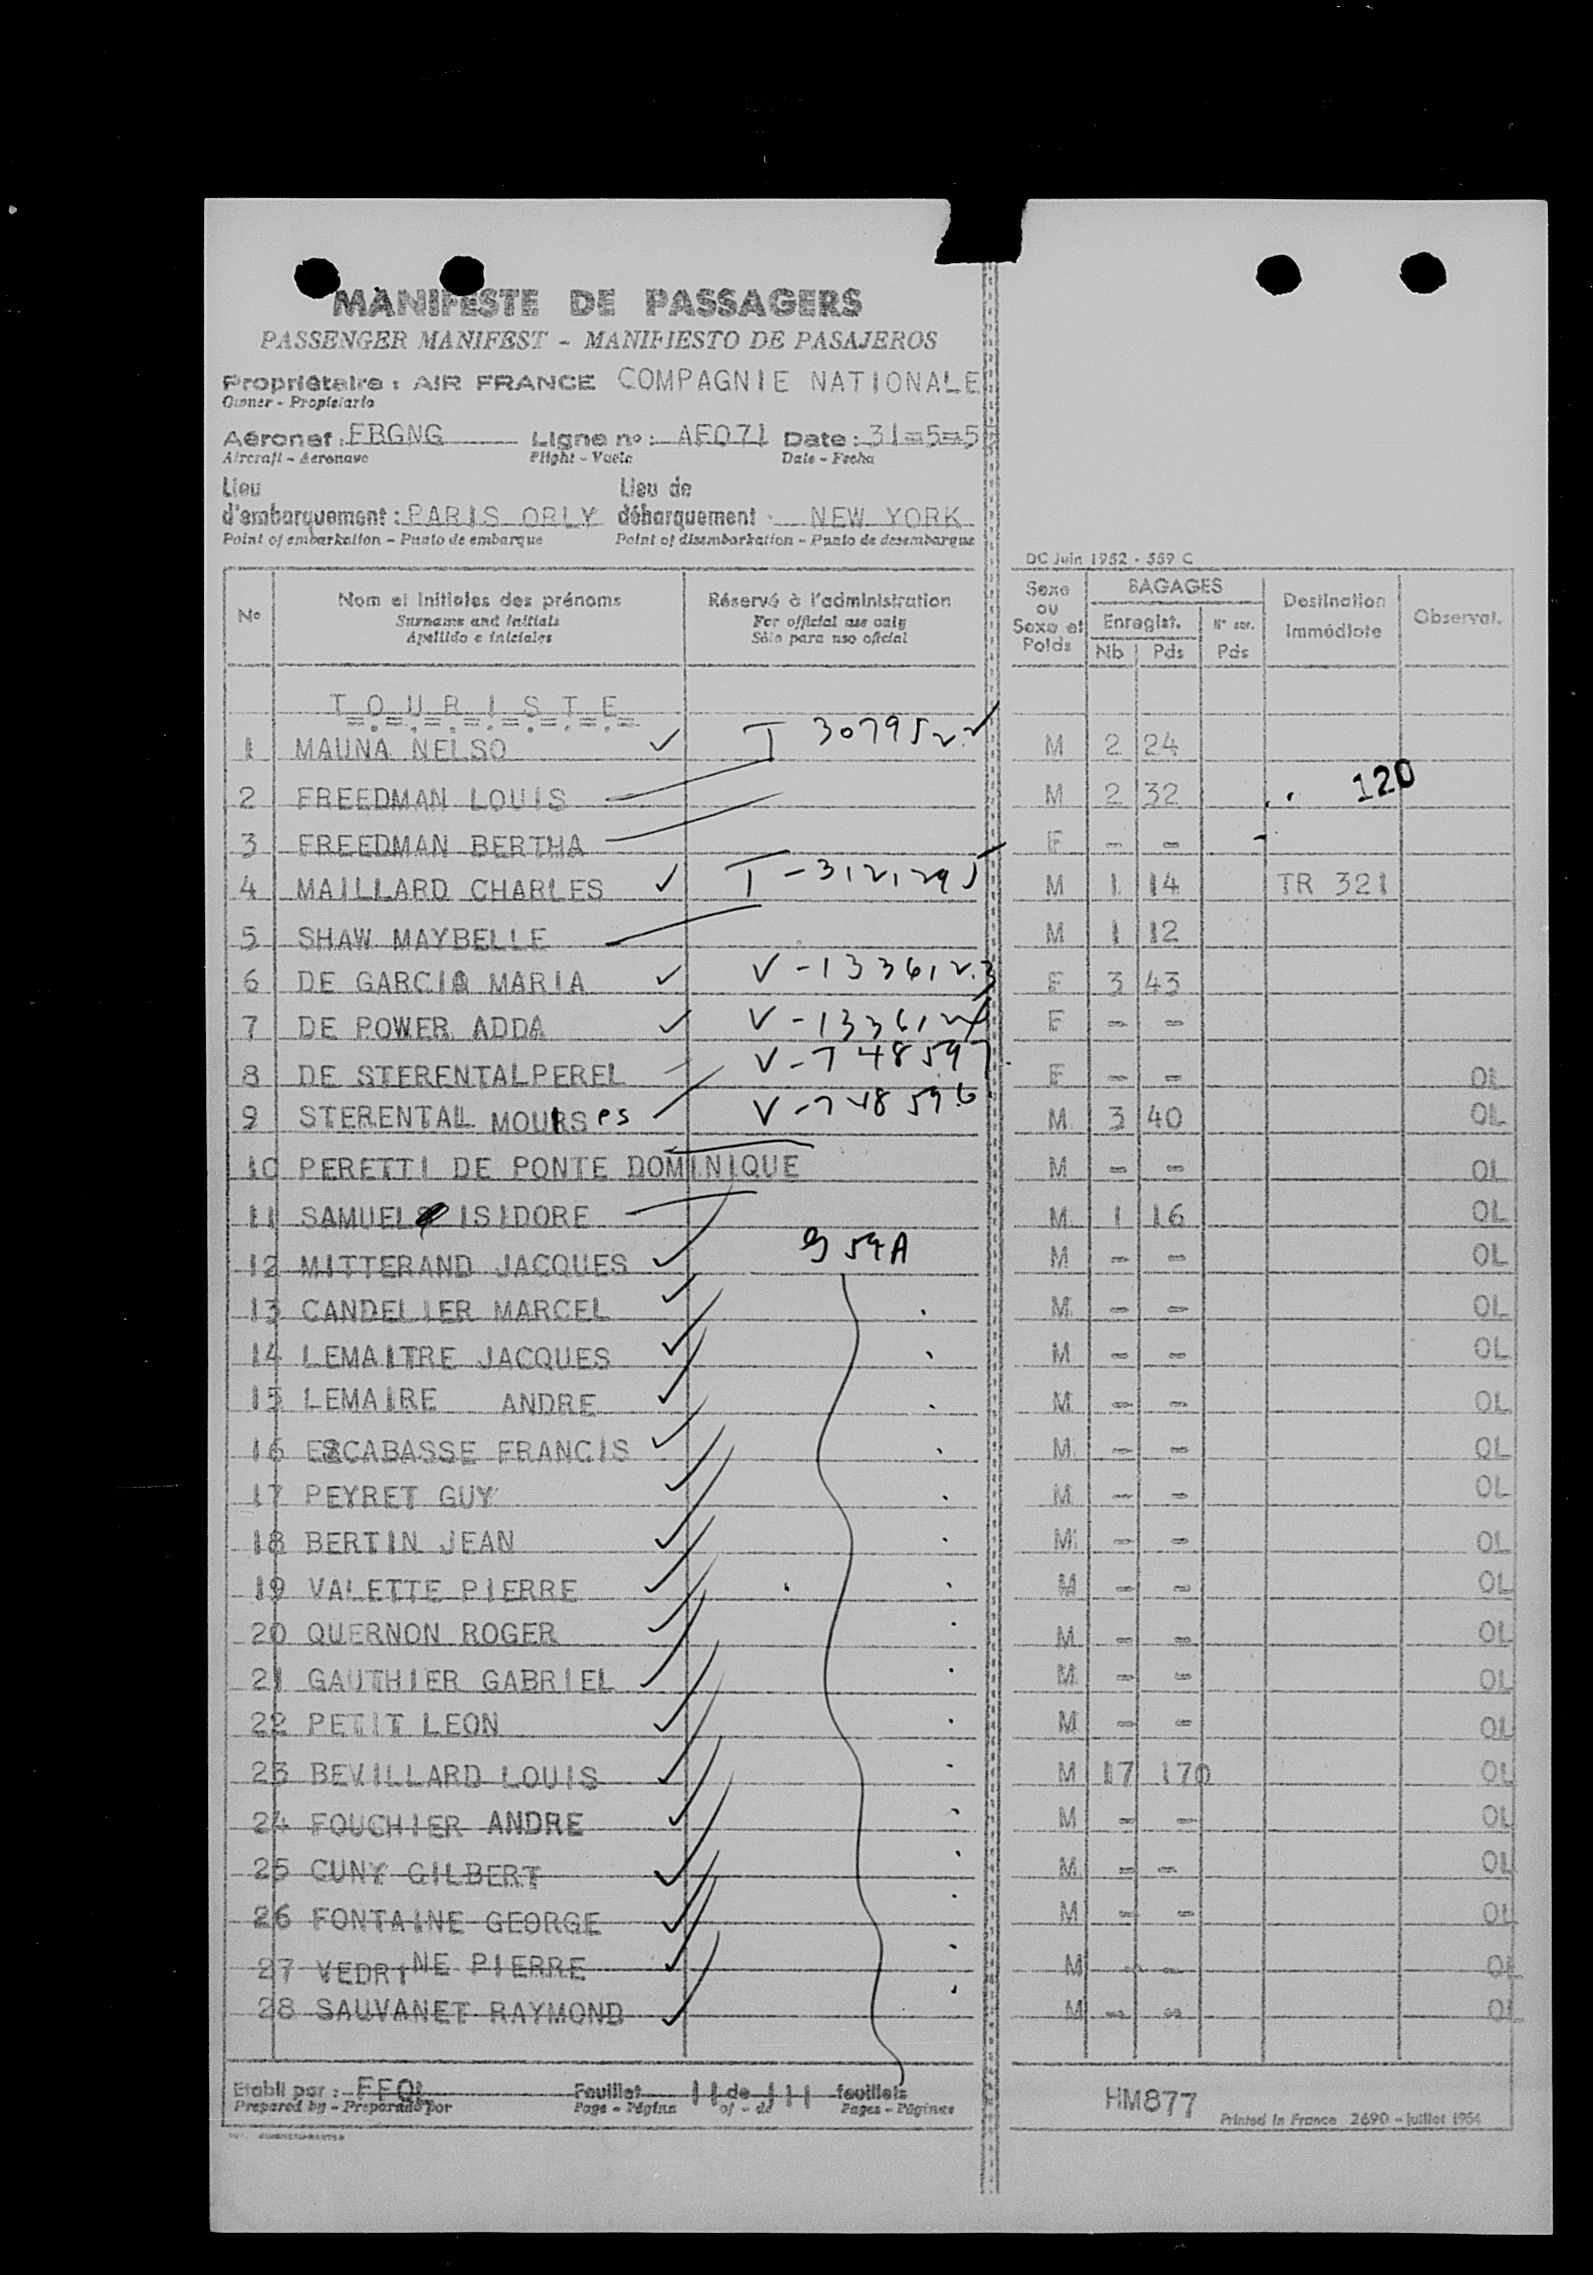 MANIFESTE DE PASSAGERS
PASSENGER MANIFEST - MANIFIESTO DE PASAJEROS
Propriétaire : AIR FRANCE COMPAGNIE NATIONALE
Owner - Propietario
Aéronef : FBGNG Ligne no : AF071 Date : 31=5=5
Aircraft - Aeronave Flight - Vuelo Date - Fecha
Lieu Lieu de
d'embarquement : PARIS ORLY débarquement NEW YORK
Point of embarkation - Punto de embarque Point of disembarkation - Punto de desembarque
DC Juin 1952 - 559 C
No Nom et initiales des prénoms Réservé à l'administration Sexe ou Sexe et Poids BAGAGES Destination immédiate Observat.
Surname and initials For official use only Enregist. N° enr.
Apellido e iniciales Sólo para uso oficial Nb Pds Pds
T O U R I S T E
1 MAUNA NELSO T 307952 M 2 24
2 FREEDMAN LOUIS M 2 32 120
3 FREEDMAN BERTHA F - -
4 MAILLARD CHARLES T-3121295 M 1 14 TR 321
5 SHAW MAYBELLE M 1 12
6 DE GARCIA MARIA V-1336123 F 3 43
7 DE POWER ADDA V-133612 F - -
8 DE STERENTALPEREL V-748597 F - - OL
9 STERENTAL V-748596 M 3 40 OL
10 PERETTI DE PONTE DOMINIQUE M - - OL
11 SAMUEL ISIDORE M 1 16 OL
12 MITTERAND JACQUES 59A M - - OL
13 CANDELIER MARCEL M - - OL
14 LEMAITRE JACQUES M - - OL
15 LEMAIRE ANDRE M - - OL
16 ESCABASSE FRANCIS M - - OL
17 PEYRET GUY M - - OL
18 BERTIN JEAN M - - OL
19 VALETTE PIERRE M - - OL
20 QUERNON ROGER M - - OL
21 GAUTHIER GABRIEL M - - OL
22 PETIT LEON M - - OL
23 BEVILLARD LOUIS M 17 170 OL
24 FOUCHIER ANDRE M - - OL
25 CUNY GILBERT M - - OL
26 FONTAINE GEORGE M - - OL
27 VEDRINE PIERRE M - - OL
28 SAUVANET RAYMOND M - - OL
Etabli par : Feuillet 11 de 111 feuillets
Prepared by - Preparado por Page - Página of - de Pages - Páginas
HM877 Printed in France 2690 - juillet 1954